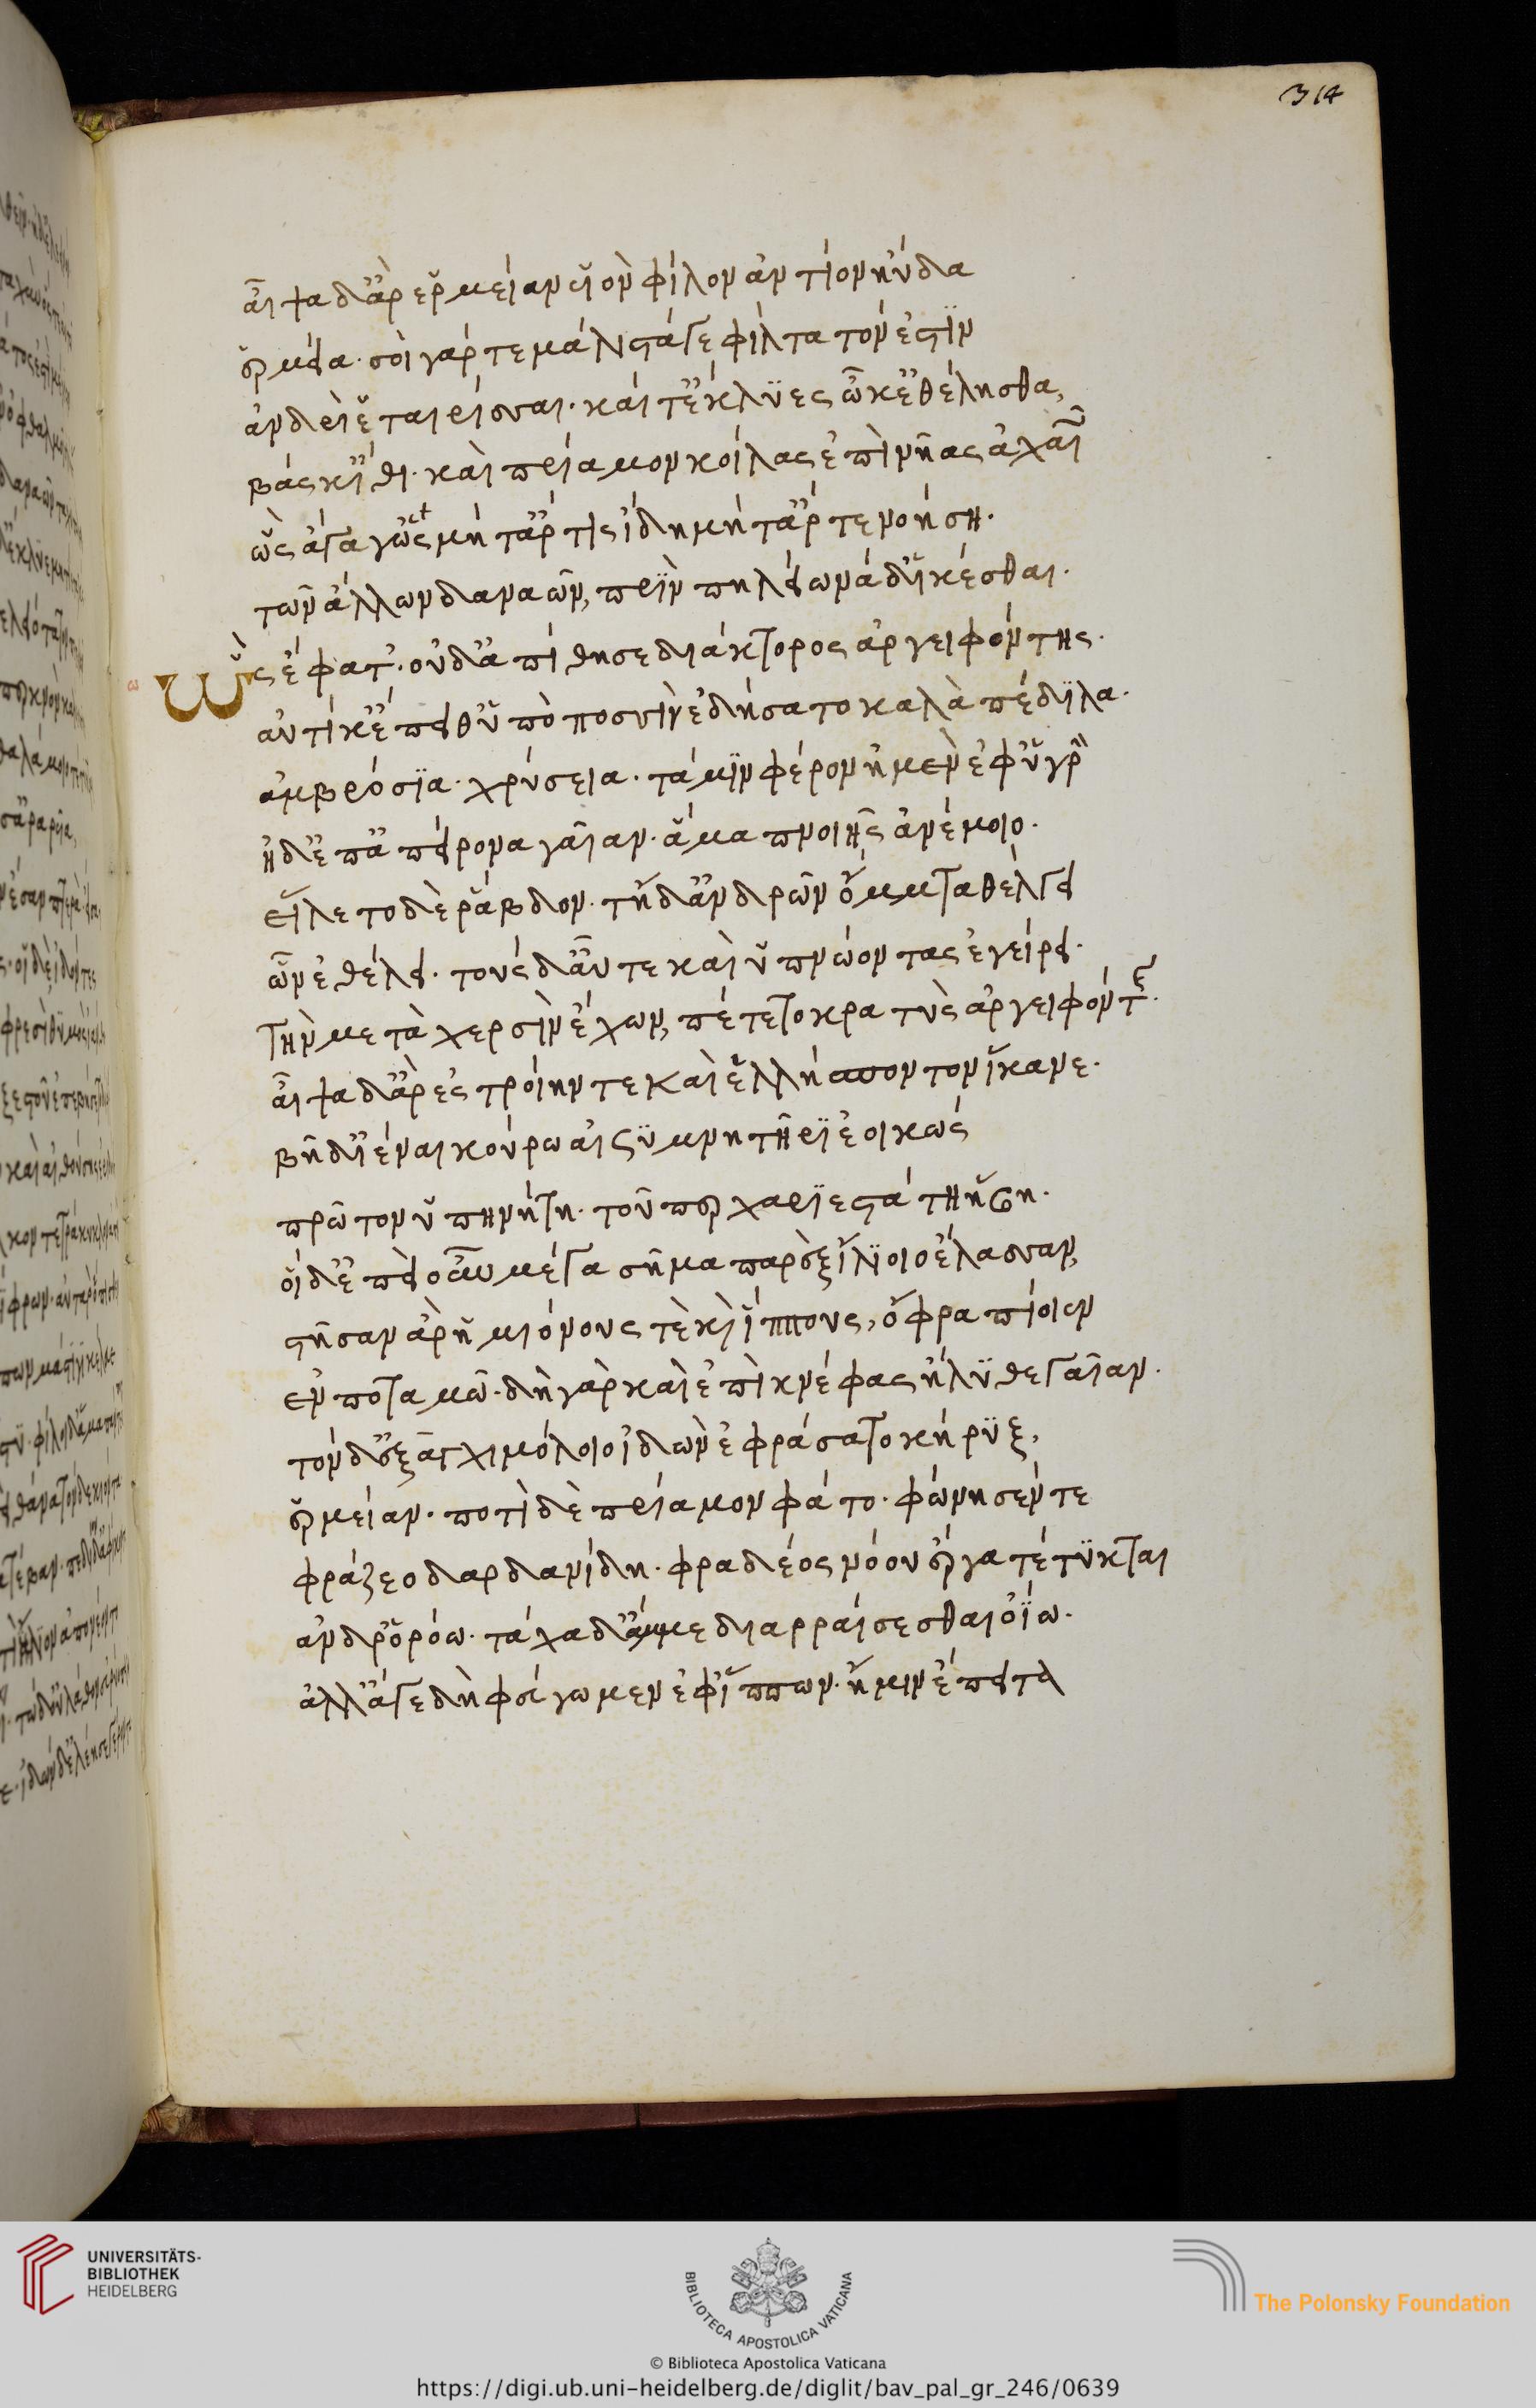 314
αἶψα δ' ἄρ' ἑρμείαν υἱὸν φίλον ἀντίον ηὔδα
ἑρμεία· σοὶ γάρ τε μάλιστά γε φίλτατόν ἐστϊν
ἀνδρὶ ἑταιρίσσαι· καί τ' ἔκλϋες ὧ κ' ἐθέλησθα,
βάσκ' ἴθι· καὶ πρίαμον κοίλας ἐπὶ νῆας ἀχαιῶν
ὣς ἄγαγ' ὡς μήτ' ἄρ τις ἴδη μήτ' ἄρ τε νοήση·
τῶν ἄλλων δαναῶν, πρϊν πηλείωνάδ' ἱκέσθαι·
Ὣς ἔφατ'· οὐδ' ἀπίθησε διάκτορος ἀργειφόντης·
αὐτίκ' ἔπειθ' ὑπὸ ποσσὶν ἐδήσατο καλὰ πέδϊλα·
ἀμβρόσϊα· χρύσεια· τά μϊν φέρον ἠμὲν ἐφ' ὑγρὴν
ἠδ' ἐπ' ἀπείρονα γαῖαν· ἅμα πνοιῆς ἀνέμοιο·
εἵλετο δὲ ῥάβδον· τῆ δ' ἀνδρῶν ὄμματα θέλγει
ὧν ἐθέλει· τοὺς δ' αὖτε καὶ ὑπνώοντας ἐγείρει·
τὴν μετὰ χερσὶν ἔχων, πέτετο κρατὺς ἀργειφόντης·
αἶψα δ' ἄρ' ἐς τροίην τε καὶ ἑλλήσποντον ἵκανε·
βῆ δ' ἰέναι κούρω αἰσϋμνητῆρϊ ἐοικώς
πρῶτον ὑπηνήτη· τοῦ περ χαρϊεστάτη ἥβη·
οἱ δ' ἐπεὶ οὖν μέγα σῆμα παρὲξ ἴλϊοιο ἔλασσαν,
στῆσαν ἄρ' ἡμιόνους τὲ καὶ ἵππους, ὄφρα πίοιεν
ἐν ποταμῶ· δὴ γὰρ καὶ ἐπὶ κνέφας ἤλϋθε γαῖαν·
τὸν δ' ἐξ ἀγχιμόλοιο ἰδὼν ἐφράσατο κήρϋξ,
ἑρμείαν· ποτὶ δὲ πρίαμον φάτο· φώνησέν τε
φράζεο δαρδανίδη· φραδέος νόου ἔργα τέτϋκται
ἄνδρ' ὁρόω· τάχα δ' ἄμμε διαρραίσεσθαι ὀΐω·
ἀλλ' ἄγε δὴ φεύγωμεν ἐφ' ἵππων· ἤ μιν ἔπειτα
UNIVERSITÄTS-
BIBLIOTHEK
HEIDELBERG
BIBLIOTECA APOSTOLICA VATICANA
The Polonsky Foundation
© Biblioteca Apostolica Vaticana
https://digi.ub.uni-heidelberg.de/diglit/bav_pal_gr_246/0639